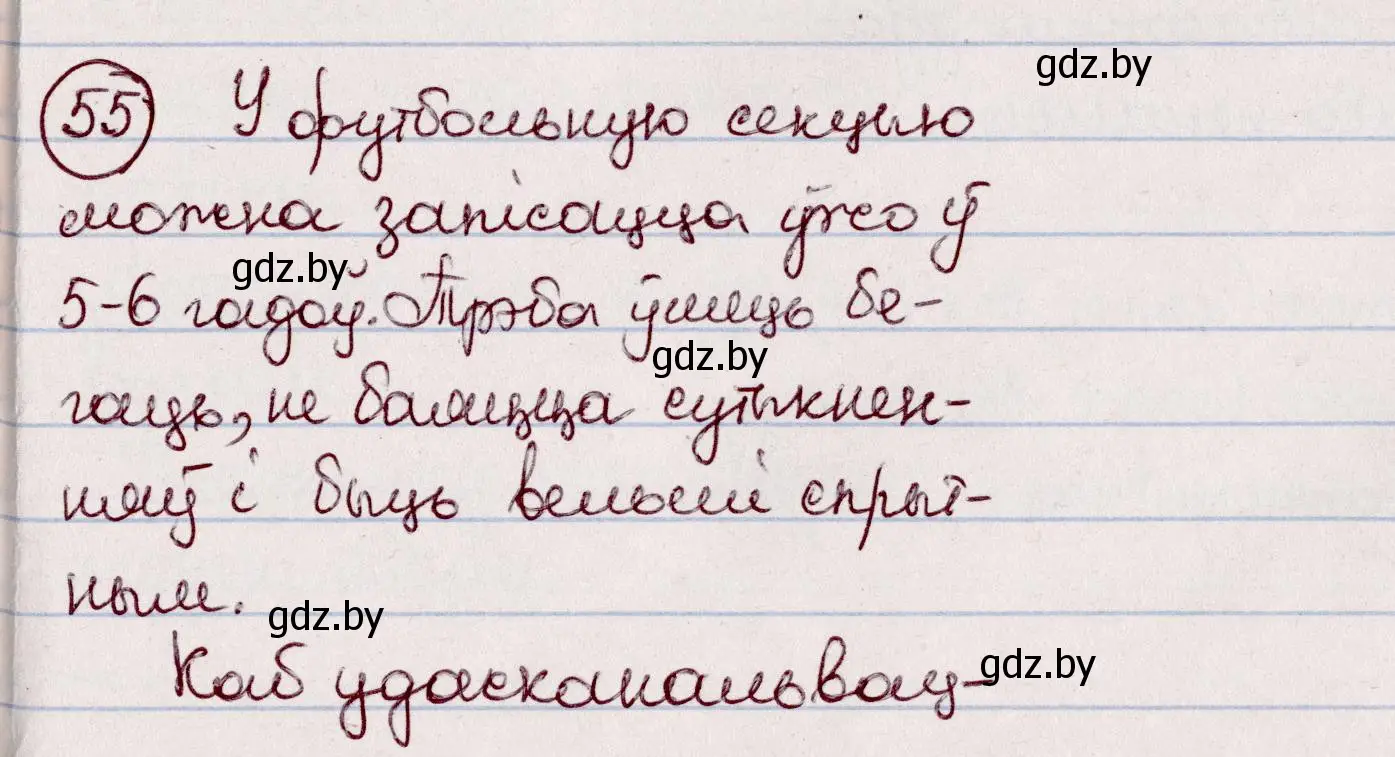 55 У футбольную секцыю gdz.by
можна запісацца ўжо ў
gdz.by
5-6 гадоў. Трэба ўмець бе-
gdz.by
гаць, не баяцца сутыкнен-
няў і быць вельмі спрыт-
ным. gdz.by
Каб удасканальвац- gdz.by